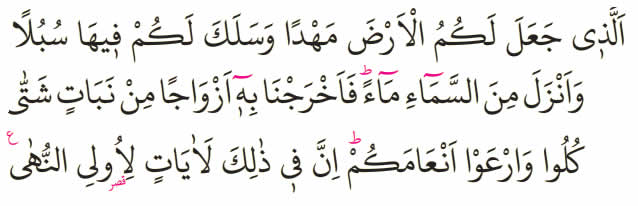 اَلَّذ۪ى جَعَلَ لَكُمُ الْاَرْضَ مَهْدًا وَسَلَكَ لَكُمْ ف۪يهَا سُبُلًا
وَاَنْزَلَ مِنَ السَّمَٓاءِ مَٓاءًۜ فَاَخْرَجْنَا بِه۪ٓ اَزْوَاجًا مِنْ نَبَاتٍ شَتّٰى
كُلُوا وَارْعَوْا اَنْعَامَكُمْۜ اِنَّ ف۪ى ذٰلِكَ لَاٰيَاتٍ لِاُو۬لِى النُّهٰى ع
قصر